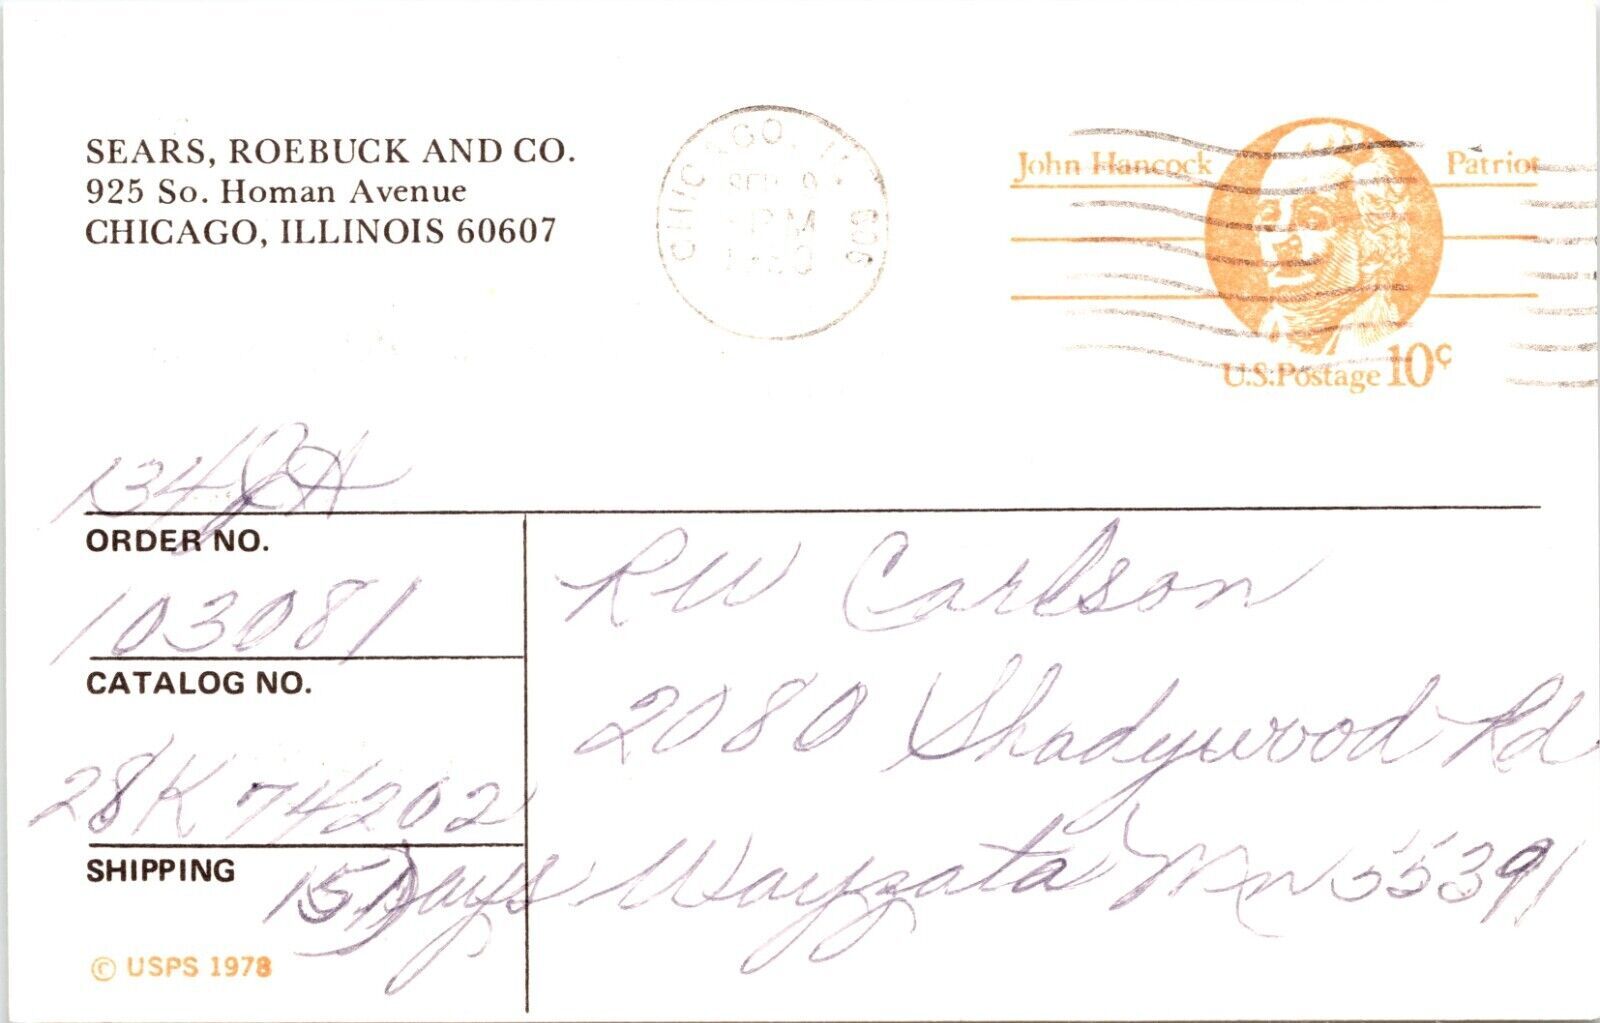 SEARS, ROEBUCK AND CO.
925 So. Homan Avenue
CHICAGO, ILLINOIS 60607
CHICAGO, IL 606
SEP 9
PM
John Hancock Patriot
U.S. Postage 10¢
134
ORDER NO.
103081
CATALOG NO.
28K 74202
SHIPPING
15 Days
RW Carlson
2080 Shadywood Rd
Wayzata Mn 55391
© USPS 1978